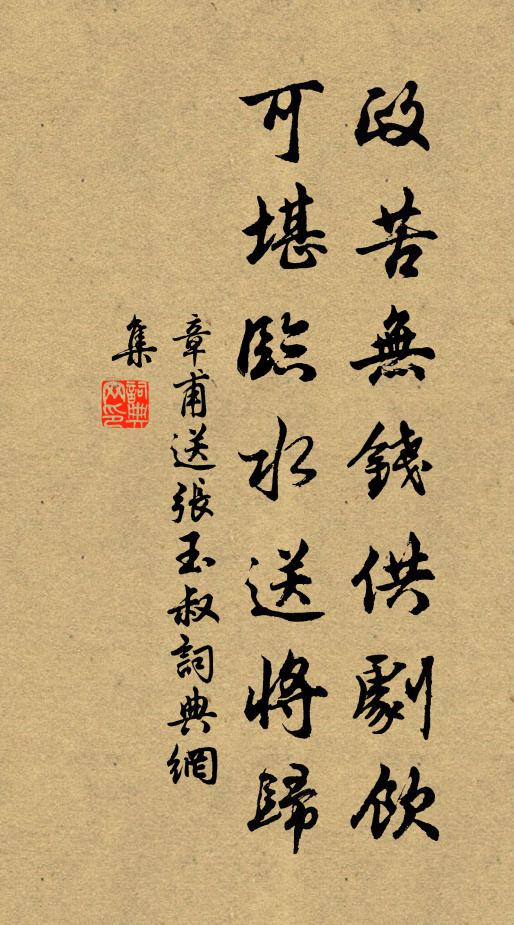 政苦無錢供劇飲
可堪臨水送將歸
章甫送張玉叔詞典網
集
詞典網印